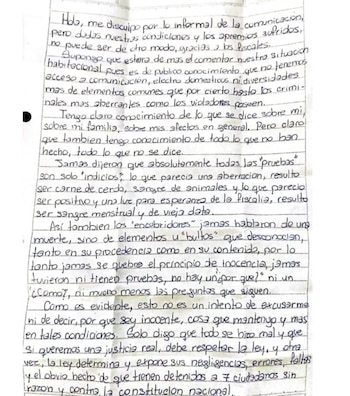 Hola, me disculpo por lo informal de la comunicación,
pero dadas nuestras condiciones y los apremios sufridos,
no puede ser de otro modo, gracias a los fiscales.
Supongo que estera de mas el comentar nuestra situacion
habitacional pues es de publico conocimiento que no tenemos
acceso a comunicación, electro domesticos ni diversidades
mas de elementos comunes que por cierto hasta los crimi-
nales mas aberrantes como los violadores poseen.
Tengo claro conocimiento de lo que se dice sobre mi,
sobre mi familia, sobre mis afectos en general. Pero claro
que tambien tengo conocimiento de todo lo que no han
hecho, todo lo que no se dice.
Jamas dijeron que absolutamente todas las "pruebas"
son solo "indicios": lo que parecia una aberracion, resulto
ser carne de cerdo, sangre de animales y lo que parecio
ser positivo y una luz para esperanza de la Fiscalia, resulto
ser sangre menstrual y de vieja data.
Asi tambien los "encubridores" jamas hablaron de una
muerte, sino de elementos u "bultos" que desconocian,
tanto en su procedencia como en su contenido, por lo
tanto jamas se quebro el principio de inocencia, jamas
tuvieron ni tienen pruebas, no hay un ¿por que? ni un
¿Como?, ni mucho menos las preguntas que siguen.
Como es evidente, esto no es un intento de excusarme
ni de decir, por que soy inocente, cosa que mantengo y mas
en tales condiciones. Solo digo que todo se hizo mal y que
si queremos una justicia real, debe respetar la ley, y otra
vez, la ley determina y expone sus negligencias, errores, faltas
y el obvio hecho de que tienen detenidos a 7 ciudadanos sin
razon y contra la constitucion nacional.